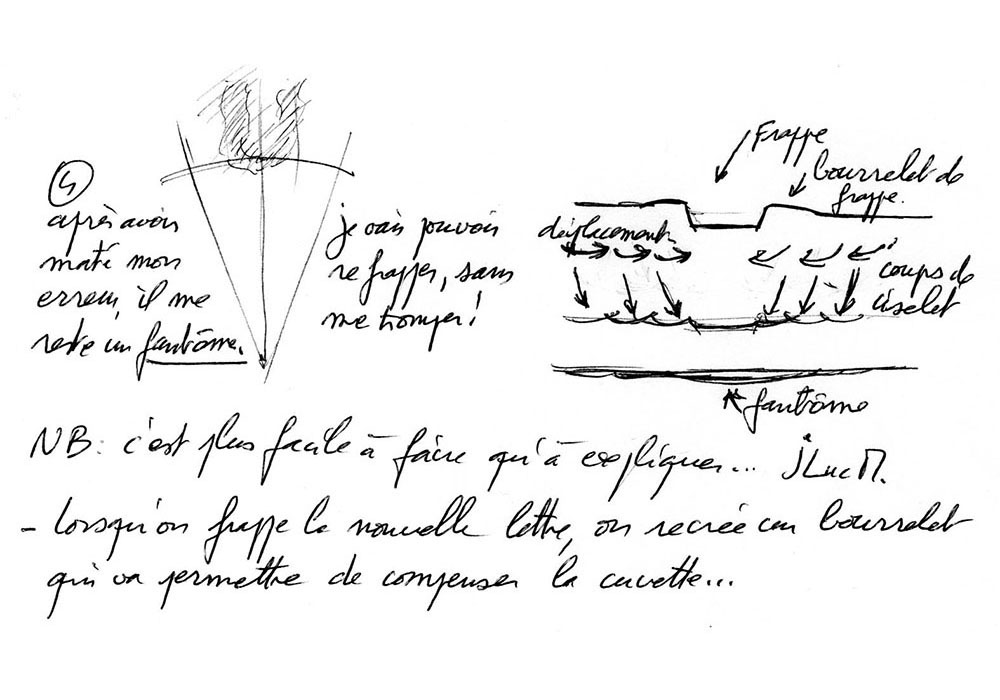 4
après avoir
maté mon
erreur, il me
reste un fantôme.
je vais pouvoir
refrapper, sans
me tromper!
Frappe
bourrelet de
frappe.
déplacement
coups de
ciselet
fantôme
NB: c'est plus facile à faire qu'à expliquer... jLuc M.
- lorsqu'on frappe la nouvelle lettre, on recrée un bourrelet
qui va permettre de compenser la cuvette...